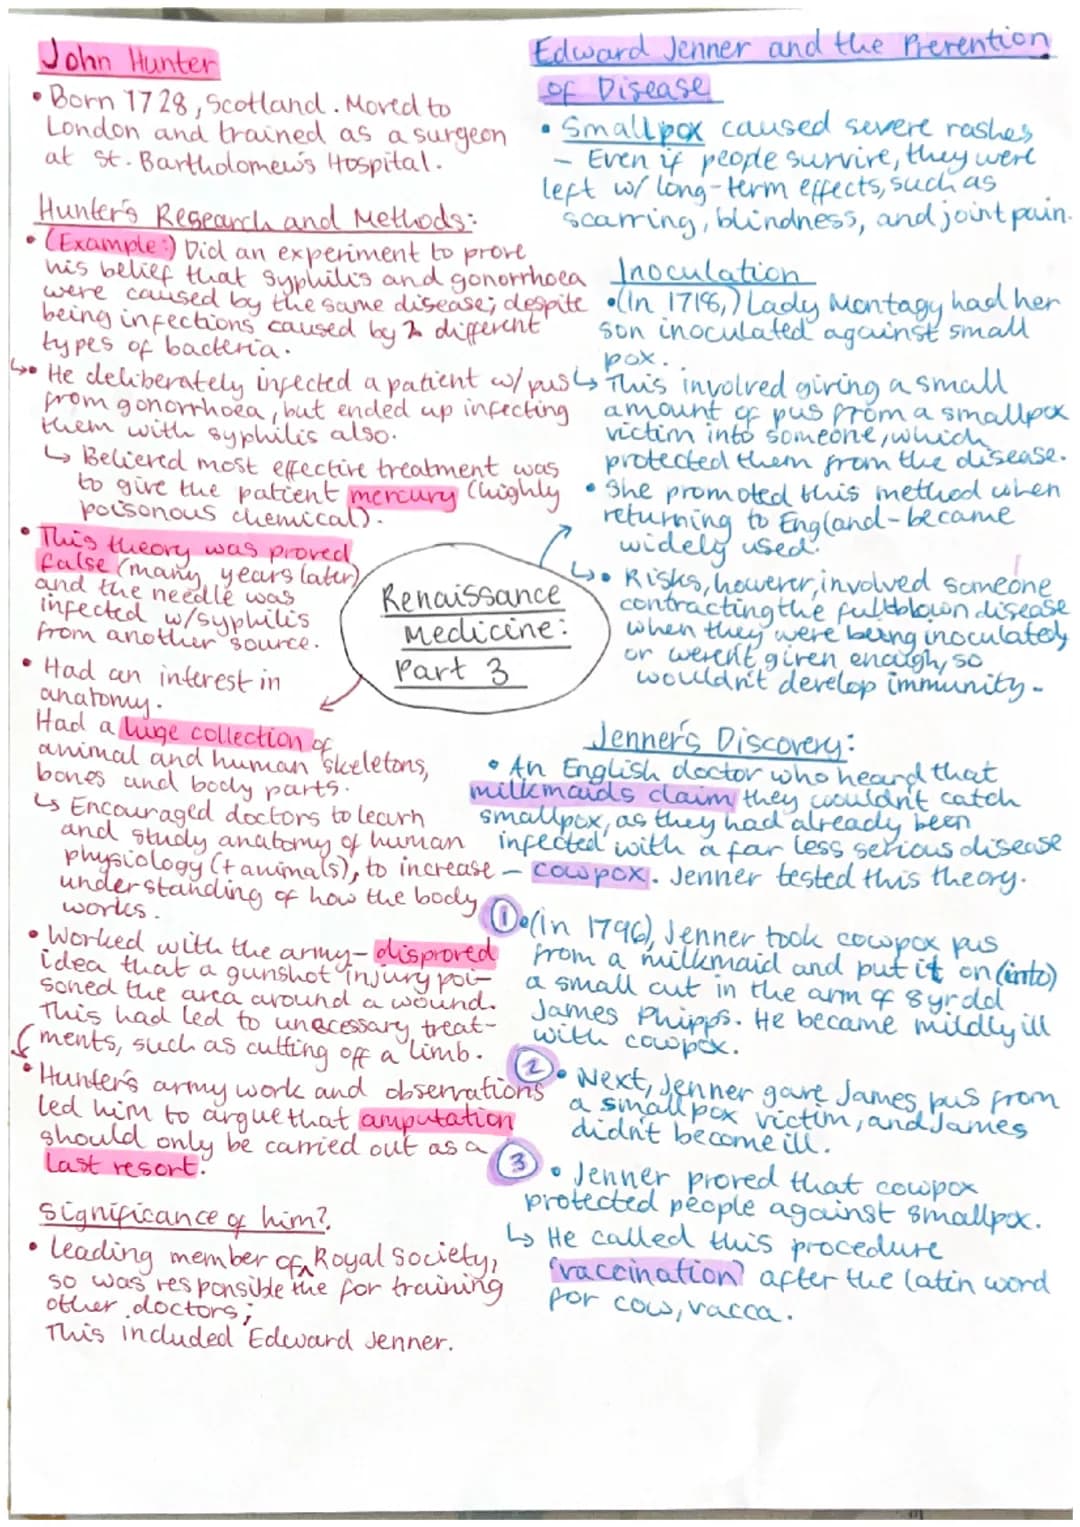 John Hunter
• Born 1728, Scotland. Moved to
London and trained as a surgeon
at St. Bartholomew's Hospital.
Hunter's Research and Methods:
• (Example:) Did an experiment to prove
his belief that syphilis and gonorrhoea
were caused by the same disease; despite
being infections caused by 2 different
types of bacteria.
↳• He deliberately infected a patient w/ pus
from gonorrhoea, but ended up infecting
them with syphilis also.
↳ Believed most effective treatment was
to give the patient mercury (highly
poisonous chemical).
• This theory was proved
false (many years later)
and the needle was
infected w/syphilis
from another source.
• Had an interest in
anatomy.
Had a huge collection of
animal and human skeletons,
bones and body parts.
↳ Encouraged doctors to learn
and study anatomy of human
physiology (+ animals), to increase
understanding of how the body
works.
• Worked with the army- disproved
idea that a gunshot injury poi-
soned the area around a wound.
This had led to unecessary treat-
ments, such as cutting off a limb.
• Hunter's army work and observations
led him to argue that amputation
should only be carried out as a
last resort.
Significance of him?
• Leading member of ^ Royal Society,
so was responsible the for training
other doctors;
This included Edward Jenner.
Renaissance
Medicine:
Part 3
Edward Jenner and the Prevention
of Disease
• Smallpox caused severe rashes
– Even if people survive, they were
left w/ long-term effects, such as
scarring, blindness, and joint pain.
Inoculation
• (In 1718,) Lady Montagy had her
son inoculated against small
pox.
↳ This involved giving a small
amount of pus from a smallpox
victim into someone, which
protected them from the disease.
• She promoted this method when
returning to England - became
widely used.
↳• Risks, however, involved someone
contracting the fullblown disease
when they were being inoculated,
or weren't given enough, so
wouldn't develop immunity.
Jenner's Discovery:
• An English doctor who heard that
milkmaids claim they wouldn't catch
smallpox, as they had already been
infected with a far less serious disease
– cowpox. Jenner tested this theory.
① • (In 1796), Jenner took cowpox pus
from a milkmaid and put it on (into)
a small cut in the arm of 8 yr old
James Phipps. He became mildly ill
with cowpox.
② • Next, Jenner gave James pus from
a smallpox victim, and James
didn't become ill.
③ • Jenner proved that cowpox
protected people against smallpox.
↳ He called this procedure
'vaccination' after the latin word
for cow, vacca.